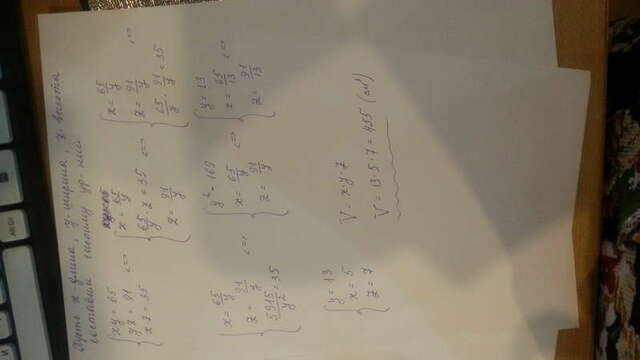 Пусть x-длина, y-ширина, z-высота
составим систему ур-ний
{xy = 65, yz = 91, xz = 35 <=> {x = 65/y, 65/y · z = 35, z = 91/y <=> {x = 65/y, z = 91/y, 65/y · 91/y = 35 <=>
{x = 65/y, z = 91/y, 5915/y² = 35 <=> {y² = 169, x = 65/y, z = 91/y <=> {y = 13, x = 65/13, z = 91/13 <=>
{y = 13, x = 5, z = 7
V = x·y·z
V = 13·5·7 = 455 (см³)